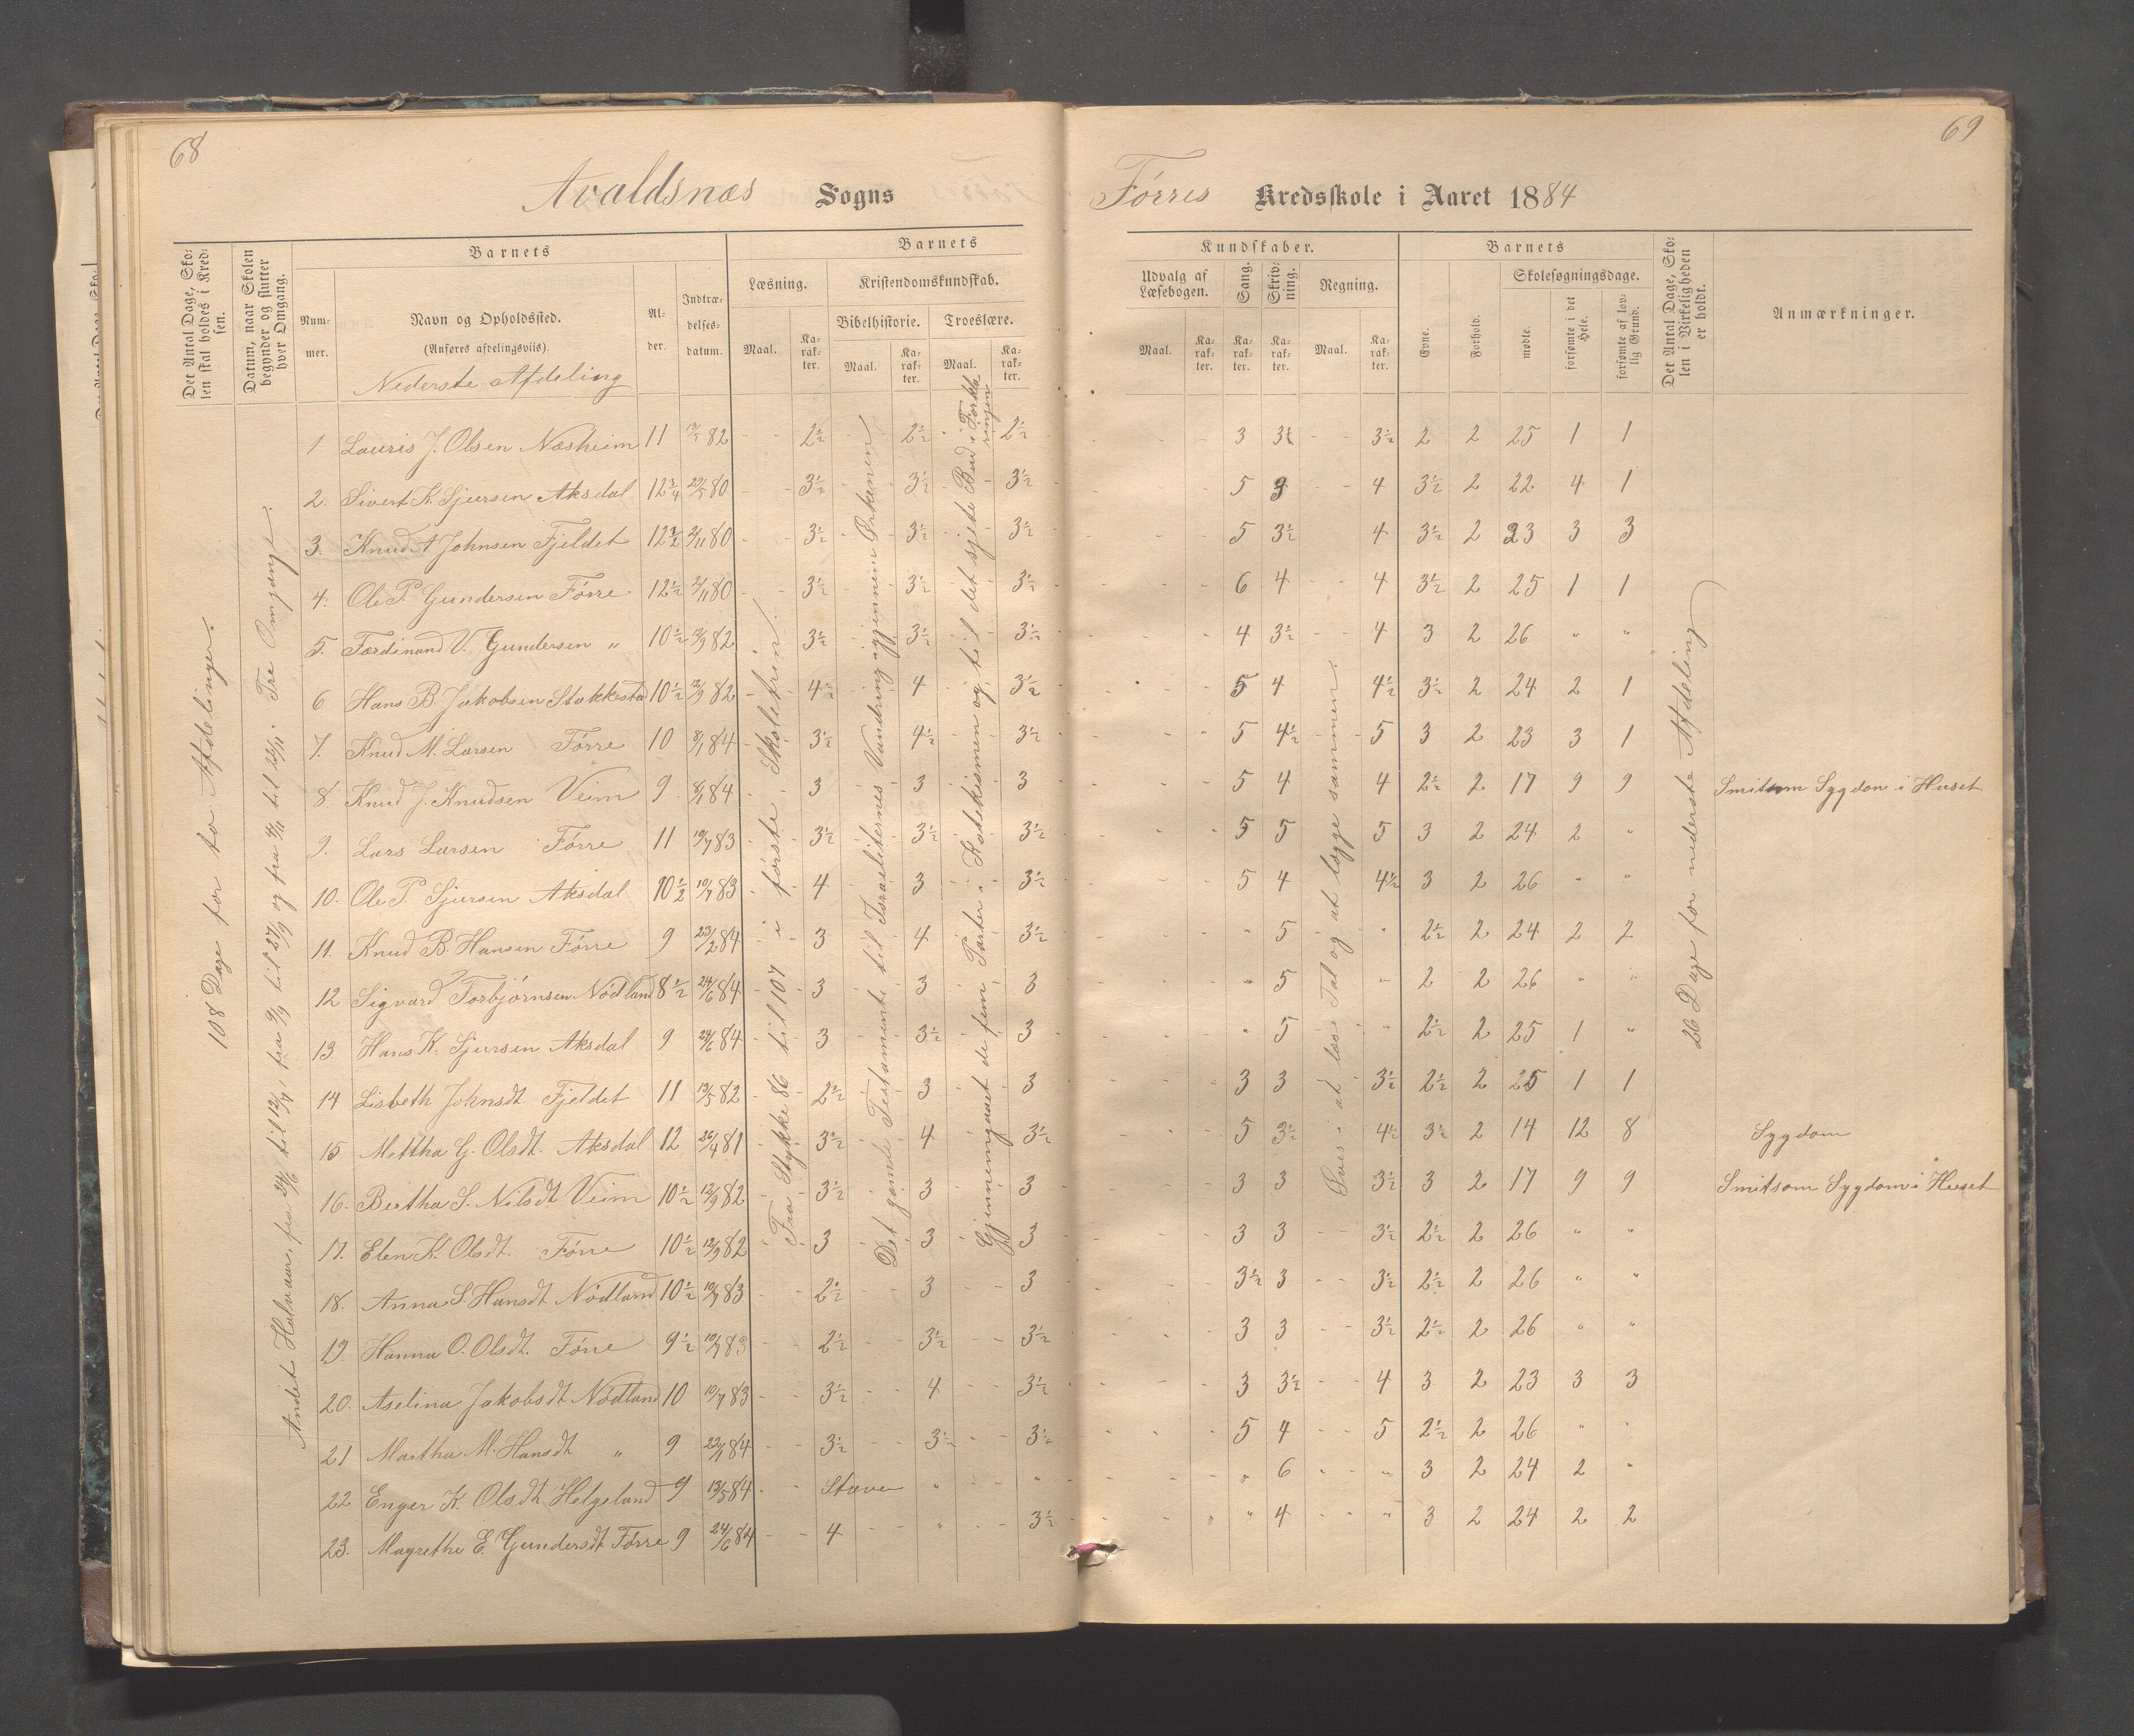 68
Avaldsnæs Sogns
Det Antal Dage, Skolen skal holdes i Kredsen.
Datum, naar Skolen begynder og slutter hver Omgang.
Barnets
Nummer.
Navn og Opholdssted.
(Anføres afdelingsviis).
Nederste Afdeling
Alder.
Indtrædelsesdatum.
Barnets
Læsning.
Kristendomskundskab.
Bibelhistorie. Troeslære.
Maal. Karakter. Maal. Karakter. Maal. Karakter.
108 Dage for to Afdelinger.
Andet Halvaar, fra 24/6 til 12/7, fra 9/9 til 27/9 og fra 4/11 til 22/11. Tre Omgange.
Fra Stykke 86 til 107 i første Skoletrin.
Det gamle Testamente til Israeliternes Vandring igjennem Ørkenen
Gjennemgaaet de fem Parter i Katekismen og til det sjette Bud i Forklaringen
1 Lauris J. Olsen Næsheim 11 13/5 82 - - 2½ - - 2½ - - 2½
2. Sivert K. Sjursen Aksdal 12¾ 29/5 80 - - 3½ - - 3½ - - 3½
3. Knud A Johnsen Fjeldet 12½ 2/11 80 - - 3½ - - 3½ - - 3½
4. Ole P. Gundersen Førre 12½ 2/11 80 - - 3½ - - 3½ - - 3½
5. Færdinand V. Gundersen " 10½ 12/9 82 3½ - - 3½ - - 3½
6 Hans B. Jakobsen Stakkestad 10½ 12/9 82 - - 4½ - - 4 3½
7. Knud M. Larsen Førre 10 8/1 84 - - 3½ - - 4½ - - 3½
8 Knud J. Knudsen Veim 9 8/1 84 - - 3 - - 3 - - 3
9. Lars Larsen Førre 11 10/7 83 - - 3½ - - 3½ - - 3½
10. Ole P. Sjursen Aksdal 10½ 10/7 83 - - 4 - - 3 - - 3½
11. Knud B. Hansen Førre 9 23/2 84 - - 3 - - 4 - - 3½
12 Sigvard Torbjørnsen Nødland 8½ 24/6 84 - - 3 - - 3 - - 3
13. Hans K. Sjursen Aksdal 9 24/6 84 - - 3 - - 3½ - - 3
14 Lisbeth Johnsdt. Fjeldet 11 13/5 82 - - 2½ - - 3 - - 3
15 Mettha G. Olsdt. Aksdal 12 26/4 81 - - 3½ - - 4 - - 3½
16. Bertha S. Nilsdt Veim 10½ 12/9 82 - - 3½ - - 3 - - 3
17. Elen K. Olsdt. Førre 10½ 12/9 82 - - 3 - - 3 - - 3
18. Anna S. Hansdt Nødland 10½ 10/7 83 - - 2½ - - 3 - - 3
19. Hanna O. Olsdt. Førre 9½ 10/7 83 - - 2½ - - 3½ - - 3½
20. Aselina Jakobsdt Nødland 10 10/7 83 - - 3½ - - 4 - - 3½
21 Martha M. Hansdt " 9 22/1 84 - - 3½ - - 3½ - - 3½
22 Enger K. Olsdt Helgeland 9 13/5 84 - - Staver " "
23. Magrethe E. Gundersdt Førre 9 24/6 84 - - 4 - - " - - 3½
69
Førres Kredsskole i Aaret 1884
Kundskaber.
Udvalg af Læsebogen.
Sang.
Skrivning.
Regning.
Maal. Karakter. Karakter. Karakter. Maal. Karakter.
Barnets
Evne.
Forhold.
Skolesøgningsdage.
mødte.
forsømte i det Hele.
forsømte af lovlig Grund.
Det Antal Dage, Skolen i Virkeligheden er holdt.
Anmærkninger.
Øves i at læse Tal og at lægge sammen.
26 Dage for nederste Afdeling
3 3½ - - 3½ 2 2 25 1 1
5 3 - - 4 3½ 2 22 4 1
5 3½ 4 3½ 2 23 3 3
6 4 - - 4 3½ 2 25 1 1
4 3½ - - 4 3 2 26 " "
5 4 4½ 3½ 2 24 2 1
5 4½ - - 5 3 2 23 3 1
5 4 4 2½ 2 17 9 9 Smitsom Sygdom i Huset
5 5 5 3 2 24 2 "
5 4 4½ 3 2 26 " "
" 5 " 2½ 2 24 2 2
" 5 " 2 2 26 " "
" 5 " 2½ 2 25 1 "
3 3 3½ 2½ 2 25 1 1
5 3½ 4½ 3½ 2 14 12 8 Sygdom
3 3 3½ 3 2 17 9 9 Smitsom Sygdom i Huset
3 3 3½ 2½ 2 26 " "
3½ 3 - - 3½ 2½ 2 26 " "
3 3 - - 3½ 2½ 2 26 " "
3 3½ - - 4 3 2 23 3 3
5 4 - - 5 2½ 2 26 " "
" 6 - - " 3 2 24 2 "
" 4 - - " 3 2 24 2 2